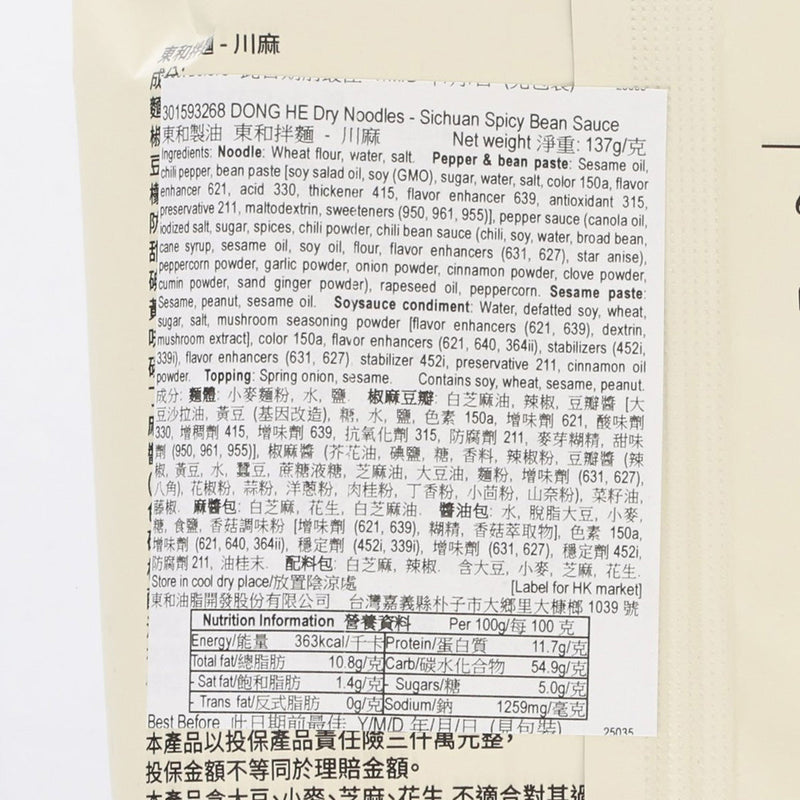 東和拌麵 - 川麻
301593268 DONG HE Dry Noodles - Sichuan Spicy Bean Sauce
東和製油 東和拌麵 - 川麻 Net weight 淨重: 137g/克
Ingredients: Noodle: Wheat flour, water, salt. Pepper & bean paste: Sesame oil,
chili pepper, bean paste [soy salad oil, soy (GMO), sugar, water, salt, color 150a, flavor
enhancer 621, acid 330, thickener 415, flavor enhancer 639, antioxidant 315,
preservative 211, maltodextrin, sweeteners (950, 961, 955)], pepper sauce (canola oil,
iodized salt, sugar, spices, chili powder, chili bean sauce (chili, soy, water, broad bean,
cane syrup, sesame oil, soy oil, flour, flavor enhancers (631, 627), star anise),
peppercorn powder, garlic powder, onion powder, cinnamon powder, clove powder,
cumin powder, sand ginger powder), rapeseed oil, peppercorn. Sesame paste:
Sesame, peanut, sesame oil. Soysauce condiment: Water, defatted soy, wheat,
sugar, salt, mushroom seasoning powder [flavor enhancers (621, 639), dextrin,
mushroom extract], color 150a, flavor enhancers (621, 640, 364ii), stabilizers (452i,
339i), flavor enhancers (631, 627). stabilizer 452i, preservative 211, cinnamon oil
powder. Topping: Spring onion, sesame. Contains soy, wheat, sesame, peanut.
成分: 麵體: 小麥麵粉, 水, 鹽. 椒麻豆瓣: 白芝麻油, 辣椒, 豆瓣醬 [大
豆沙拉油, 黃豆 (基因改造), 糖, 水, 鹽, 色素 150a, 增味劑 621, 酸味劑
330, 增稠劑 415, 增味劑 639, 抗氧化劑 315, 防腐劑 211, 麥芽糊精, 甜味
劑 (950, 961, 955)], 椒麻醬 (芥花油, 碘鹽, 糖, 香料, 辣椒粉, 豆瓣醬 (辣
椒, 黃豆, 水, 蠶豆, 蔗糖液糖, 芝麻油, 大豆油, 麵粉, 增味劑 (631, 627),
八角), 花椒粉, 蒜粉, 洋蔥粉, 肉桂粉, 丁香粉, 小茴粉, 山奈粉), 菜籽油,
藤椒. 麻醬包: 白芝麻, 花生, 白芝麻油. 醬油包: 水, 脫脂大豆, 小麥,
糖, 食鹽, 香菇調味粉 [增味劑 (621, 639), 糊精, 香菇萃取物], 色素 150a,
增味劑 (621, 640, 364ii), 穩定劑 (452i, 339i), 增味劑 (631, 627), 穩定劑 452i,
防腐劑 211, 油桂末. 配料包: 白芝麻, 辣椒. 含大豆, 小麥, 芝麻, 花生.
Store in cool dry place/放置陰涼處 [Label for HK market]
東和油脂開發股份有限公司 台灣嘉義縣朴子市大鄉里大槺榔 1039 號
Nutrition Information 營養資料 Per 100g/每 100 克
Energy/能量 363kcal/千卡 Protein/蛋白質 11.7g/克
Total fat/總脂肪 10.8g/克 Carb/碳水化合物 54.9g/克
- Sat fat/飽和脂肪 1.4g/克 - Sugars/糖 5.0g/克
- Trans fat/反式脂肪 0g/克 Sodium/鈉 1259mg/毫克
Best Before 此日期前最佳 Y/M/D 年/月/日 (見包裝) 25035
本產品以投保產品責任險三仟萬元整，
投保金額不等同於理賠金額。
本產品含大豆、小麥、芝麻、花生，不適合對其過